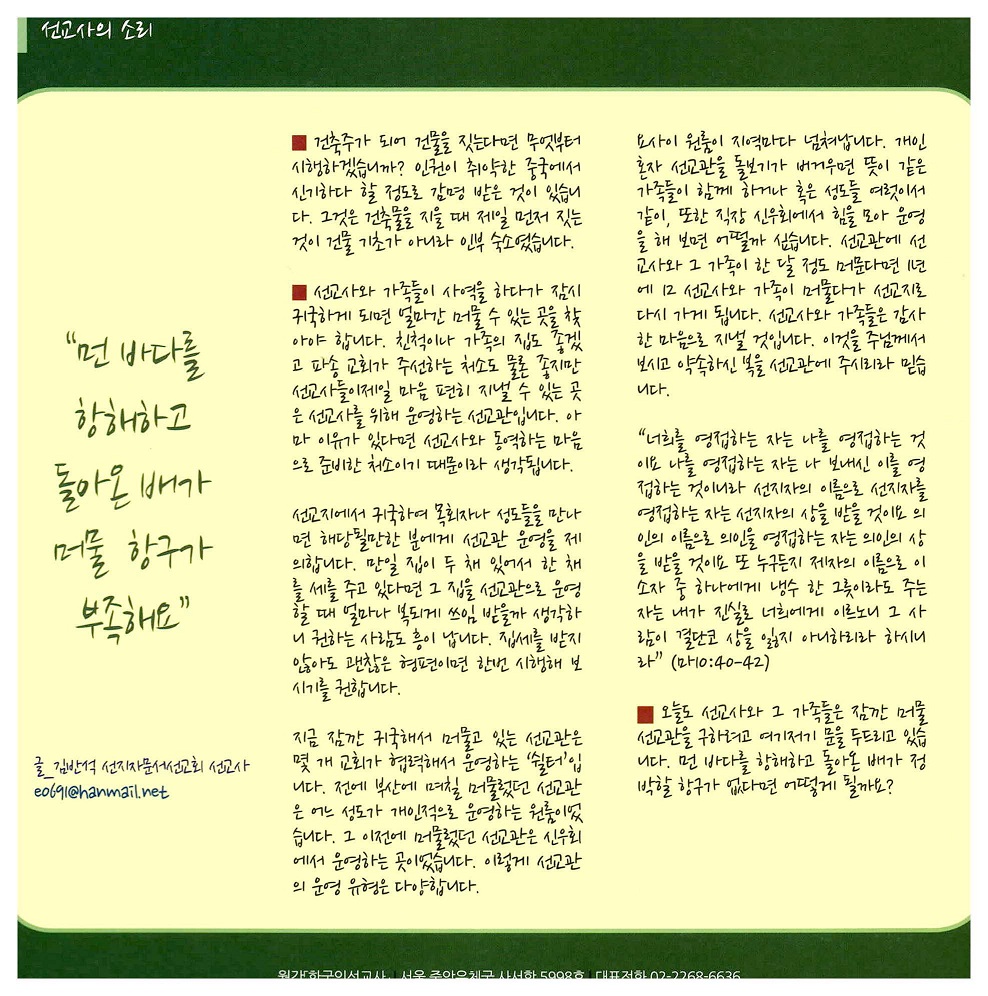 선교사의 소리
“먼 바다를
항해하고
돌아온 배가
머물 항구가
부족해요”
글_김반석 선지자문서선교회 선교사
e0691@hanmail.net
■ 건축주가 되어 건물을 짓는다면 무엇부터
시행하겠습니까? 인권이 취약한 중국에서
신기하다 할 정도로 감명 받은 것이 있습니
다. 그것은 건축물을 지을 때 제일 먼저 짓는
것이 건물 기초가 아니라 인부 숙소였습니다.
■ 선교사와 가족들이 사역을 하다가 잠시
귀국하게 되면 얼마간 머물 수 있는 곳을 찾
아야 합니다. 친척이나 가족의 집도 좋겠
고 파송 교회가 주선하는 처소도 물론 좋지만
선교사들이제일 마음 편히 지낼 수 있는 곳
은 선교사를 위해 운영하는 선교관입니다. 아
마 이유가 있다면 선교사와 동역하는 마음
으로 준비한 처소이기 때문이라 생각됩니다.
선교지에서 귀국하여 목회자나 성도들을 만나
면 해당될만한 분에게 선교관 운영을 제
의합니다. 만일 집이 두 채 있어서 한 채
를 세를 주고 있다면 그 집을 선교관으로 운영
할 때 얼마나 복되게 쓰임 받을까 생각하
니 권하는 사람도 흥이 납니다. 집세를 받지
않아도 괜찮은 형편이면 한번 시행해 보
시기를 권합니다.
지금 잠깐 귀국해서 머물고 있는 선교관은
몇 개 교회가 협력해서 운영하는 ‘쉴터’입
니다. 전에 부산에 며칠 머물렀던 선교관
은 어느 성도가 개인적으로 운영하는 원룸이었
습니다. 그 이전에 머물렀던 선교관은 신우회
에서 운영하는 곳이었습니다. 이렇게 선교관
의 운영 유형은 다양합니다.
요사이 원룸이 지역마다 넘쳐납니다. 개인
혼자 선교관을 돌보기가 버거우면 뜻이 같은
가족들이 함께 하거나 혹은 성도들 여럿이서
같이, 또한 직장 신우회에서 힘을 모아 운영
을 해 보면 어떨까 싶습니다. 선교관에 선
교사와 그 가족이 한 달 정도 머문다면 1년
에 12 선교사와 가족이 머물다가 선교지로
다시 가게 됩니다. 선교사와 가족들은 감사
한 마음으로 지낼 것입니다. 이것을 주님께서
보시고 약속하신 복을 선교관에 주시리라 믿습
니다.
“너희를 영접하는 자는 나를 영접하는 것
이요 나를 영접하는 자는 나 보내신 이를 영
접하는 것이니라 선지자의 이름으로 선지자를
영접하는 자는 선지자의 상을 받을 것이요 의
인의 이름으로 의인을 영접하는 자는 의인의 상
을 받을 것이요 또 누구든지 제자의 이름으로 이
소자 중 하나에게 냉수 한 그릇이라도 주는
자는 내가 진실로 너희에게 이르노니 그 사
람이 결단코 상을 잃지 아니하리라 하시니
라” (마10:40-42)
■ 오늘도 선교사와 그 가족들은 잠깐 머물
선교관을 구하려고 여기저기 문을 두드리고 있습
니다. 먼 바다를 항해하고 돌아온 배가 정
박할 항구가 없다면 어떻게 될까요?
월간「한국인선교사」 | 서울 중앙우체국 사서함 5998호 | 대표전화 02-2268-6636